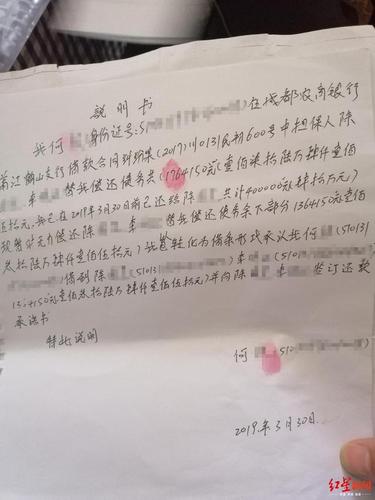 说明书
我何 身份证号:5 )在成都农商银行
蒲江鹤山支行借款合同纠纷案(2017)川0131民初600号中担保人陈
、李 替我偿还债务共(1764150元(壹佰柒拾陆万肆仟壹佰
伍拾元,我已在2019年3月30日前已还给陈 共计400000元肆拾万元)
现暂时无力偿还陈 、李 替我偿还债务余下部分1364150元壹佰
叁拾陆万肆仟壹佰伍拾元)我 转化为借条形式承认我何 (510131
)借到陈 (510131 )李 (510131 )
1364150元壹佰叁拾陆万肆仟壹佰伍拾元)并向陈 、李 签订还款
承诺书
特此说明
何 (510 )
2019年3月30日
红星新闻